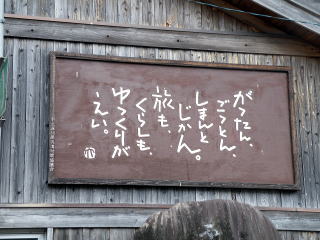 がったん、
ごっとん、
しまんと
じかん。
旅も、
くらしも、
ゆっくりが
ええ。